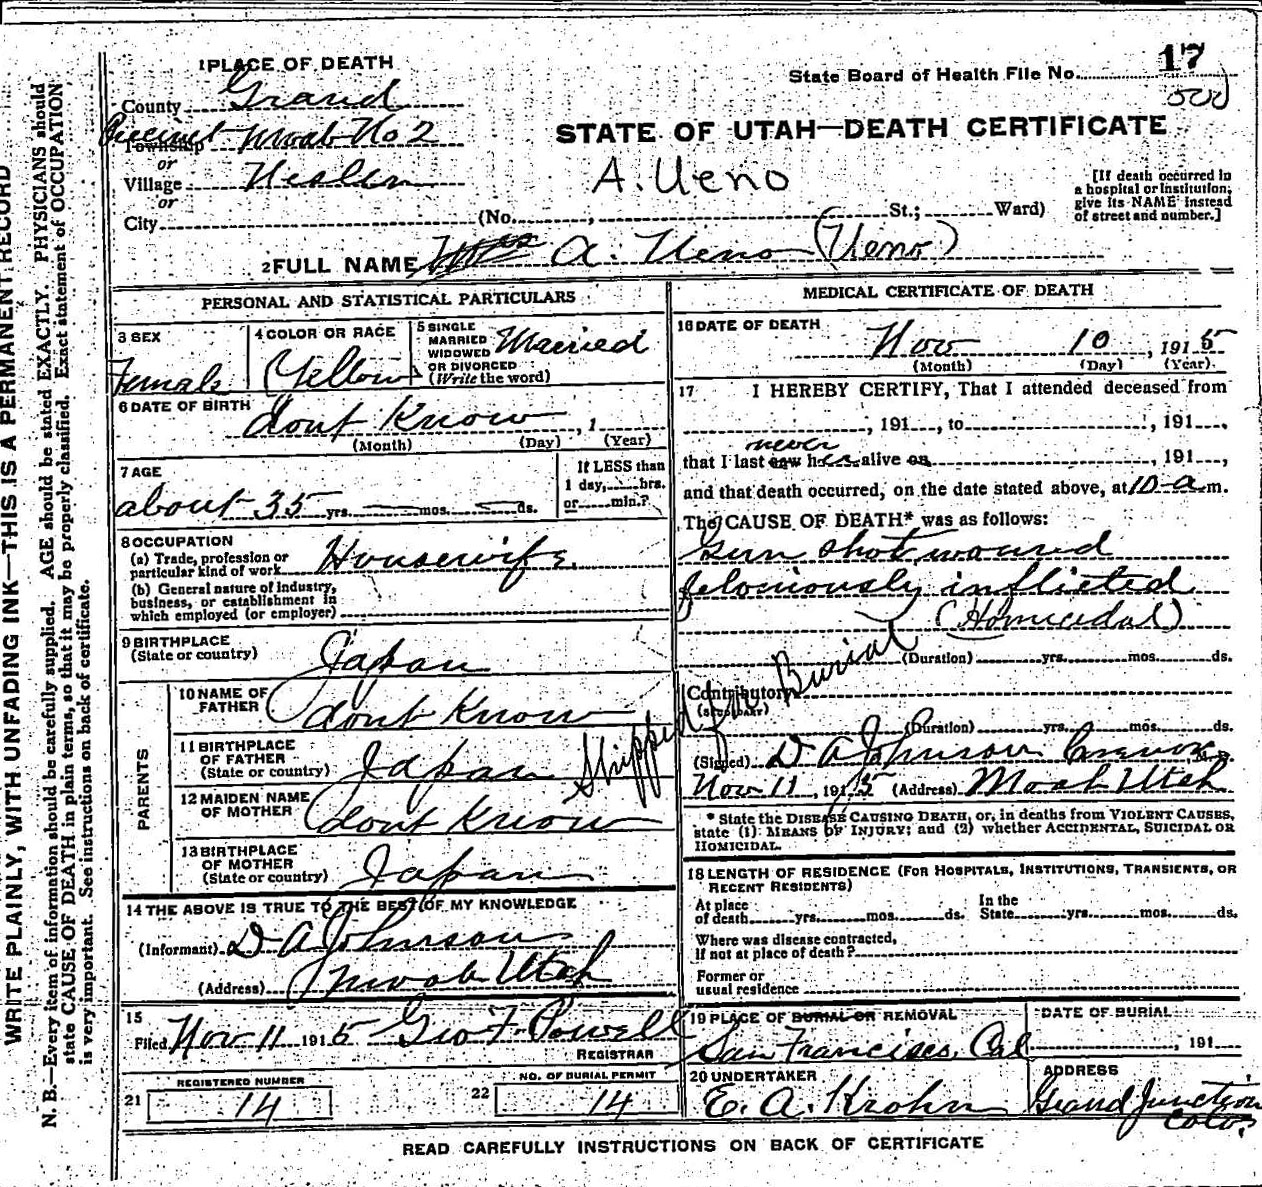 1 PLACE OF DEATH
State Board of Health File No. 17
County Grand
Precinct Moab No 2
Township
or
Village
or
City (No. , St.; Ward)
STATE OF UTAH—DEATH CERTIFICATE
A. Ueno
[If death occurred in
a hospital or institution,
give its NAME instead
of street and number.]
2 FULL NAME Mrs A. Ueno (Ueno)
PERSONAL AND STATISTICAL PARTICULARS
3 SEX
Female
4 COLOR OR RACE
Yellow
5 SINGLE
MARRIED
WIDOWED
OR DIVORCED
(Write the word)
Married
6 DATE OF BIRTH
dont Know , 1
(Month) (Day) (Year)
7 AGE
about 35 yrs. mos. ds.
If LESS than
1 day, hrs.
or min.?
8 OCCUPATION
(a) Trade, profession or
particular kind of work Housewife
(b) General nature of industry,
business, or establishment in
which employed (or employer)
9 BIRTHPLACE
(State or country) Japan
PARENTS
10 NAME OF
FATHER dont Know
11 BIRTHPLACE
OF FATHER
(State or country) Japan
12 MAIDEN NAME
OF MOTHER dont Know
13 BIRTHPLACE
OF MOTHER
(State or country) Japan
14 THE ABOVE IS TRUE TO THE BEST OF MY KNOWLEDGE
(Informant) D A Johnson
(Address) Moab Utah
15
Filed Nov 11 1915 Geo F. Powell
REGISTRAR
21 REGISTERED NUMBER
14
22 NO. OF BURIAL PERMIT
14
MEDICAL CERTIFICATE OF DEATH
16 DATE OF DEATH
Nov 10, 1915
(Month) (Day) (Year)
17 I HEREBY CERTIFY, That I attended deceased from
, 191 , to , 191 ,
never
that I last saw her alive on , 191 ,
and that death occurred, on the date stated above, at 10 a m.
The CAUSE OF DEATH* was as follows:
Gun shot wound
feloniously inflicted
(Homicidal)
(Duration) yrs. mos. ds.
Shipped for Burial
Contributory
(SECONDARY)
(Duration) yrs. mos. ds.
(Signed) D A Johnson Coroner, M.D.
Nov 11, 1915 (Address) Moab Utah
* State the DISEASE CAUSING DEATH, or, in deaths from VIOLENT CAUSES,
state (1) MEANS OF INJURY; and (2) whether ACCIDENTAL, SUICIDAL OR
HOMICIDAL.
18 LENGTH OF RESIDENCE (FOR HOSPITALS, INSTITUTIONS, TRANSIENTS, OR
RECENT RESIDENTS)
At place
of death yrs. mos. ds.
In the
State yrs. mos. ds.
Where was disease contracted,
if not at place of death?
Former or
usual residence
19 PLACE OF BURIAL OR REMOVAL
San Francisco, Cal
DATE OF BURIAL
, 191
20 UNDERTAKER
E. A. Krohn
ADDRESS
Grand Junction
Colo.
READ CAREFULLY INSTRUCTIONS ON BACK OF CERTIFICATE
WRITE PLAINLY, WITH UNFADING INK—THIS IS A PERMANENT RECORD
N. B.—Every item of information should be carefully supplied. AGE should be stated EXACTLY. PHYSICIANS should
state CAUSE OF DEATH in plain terms, so that it may be properly classified. Exact statement of OCCUPATION
is very important. See instructions on back of certificate.